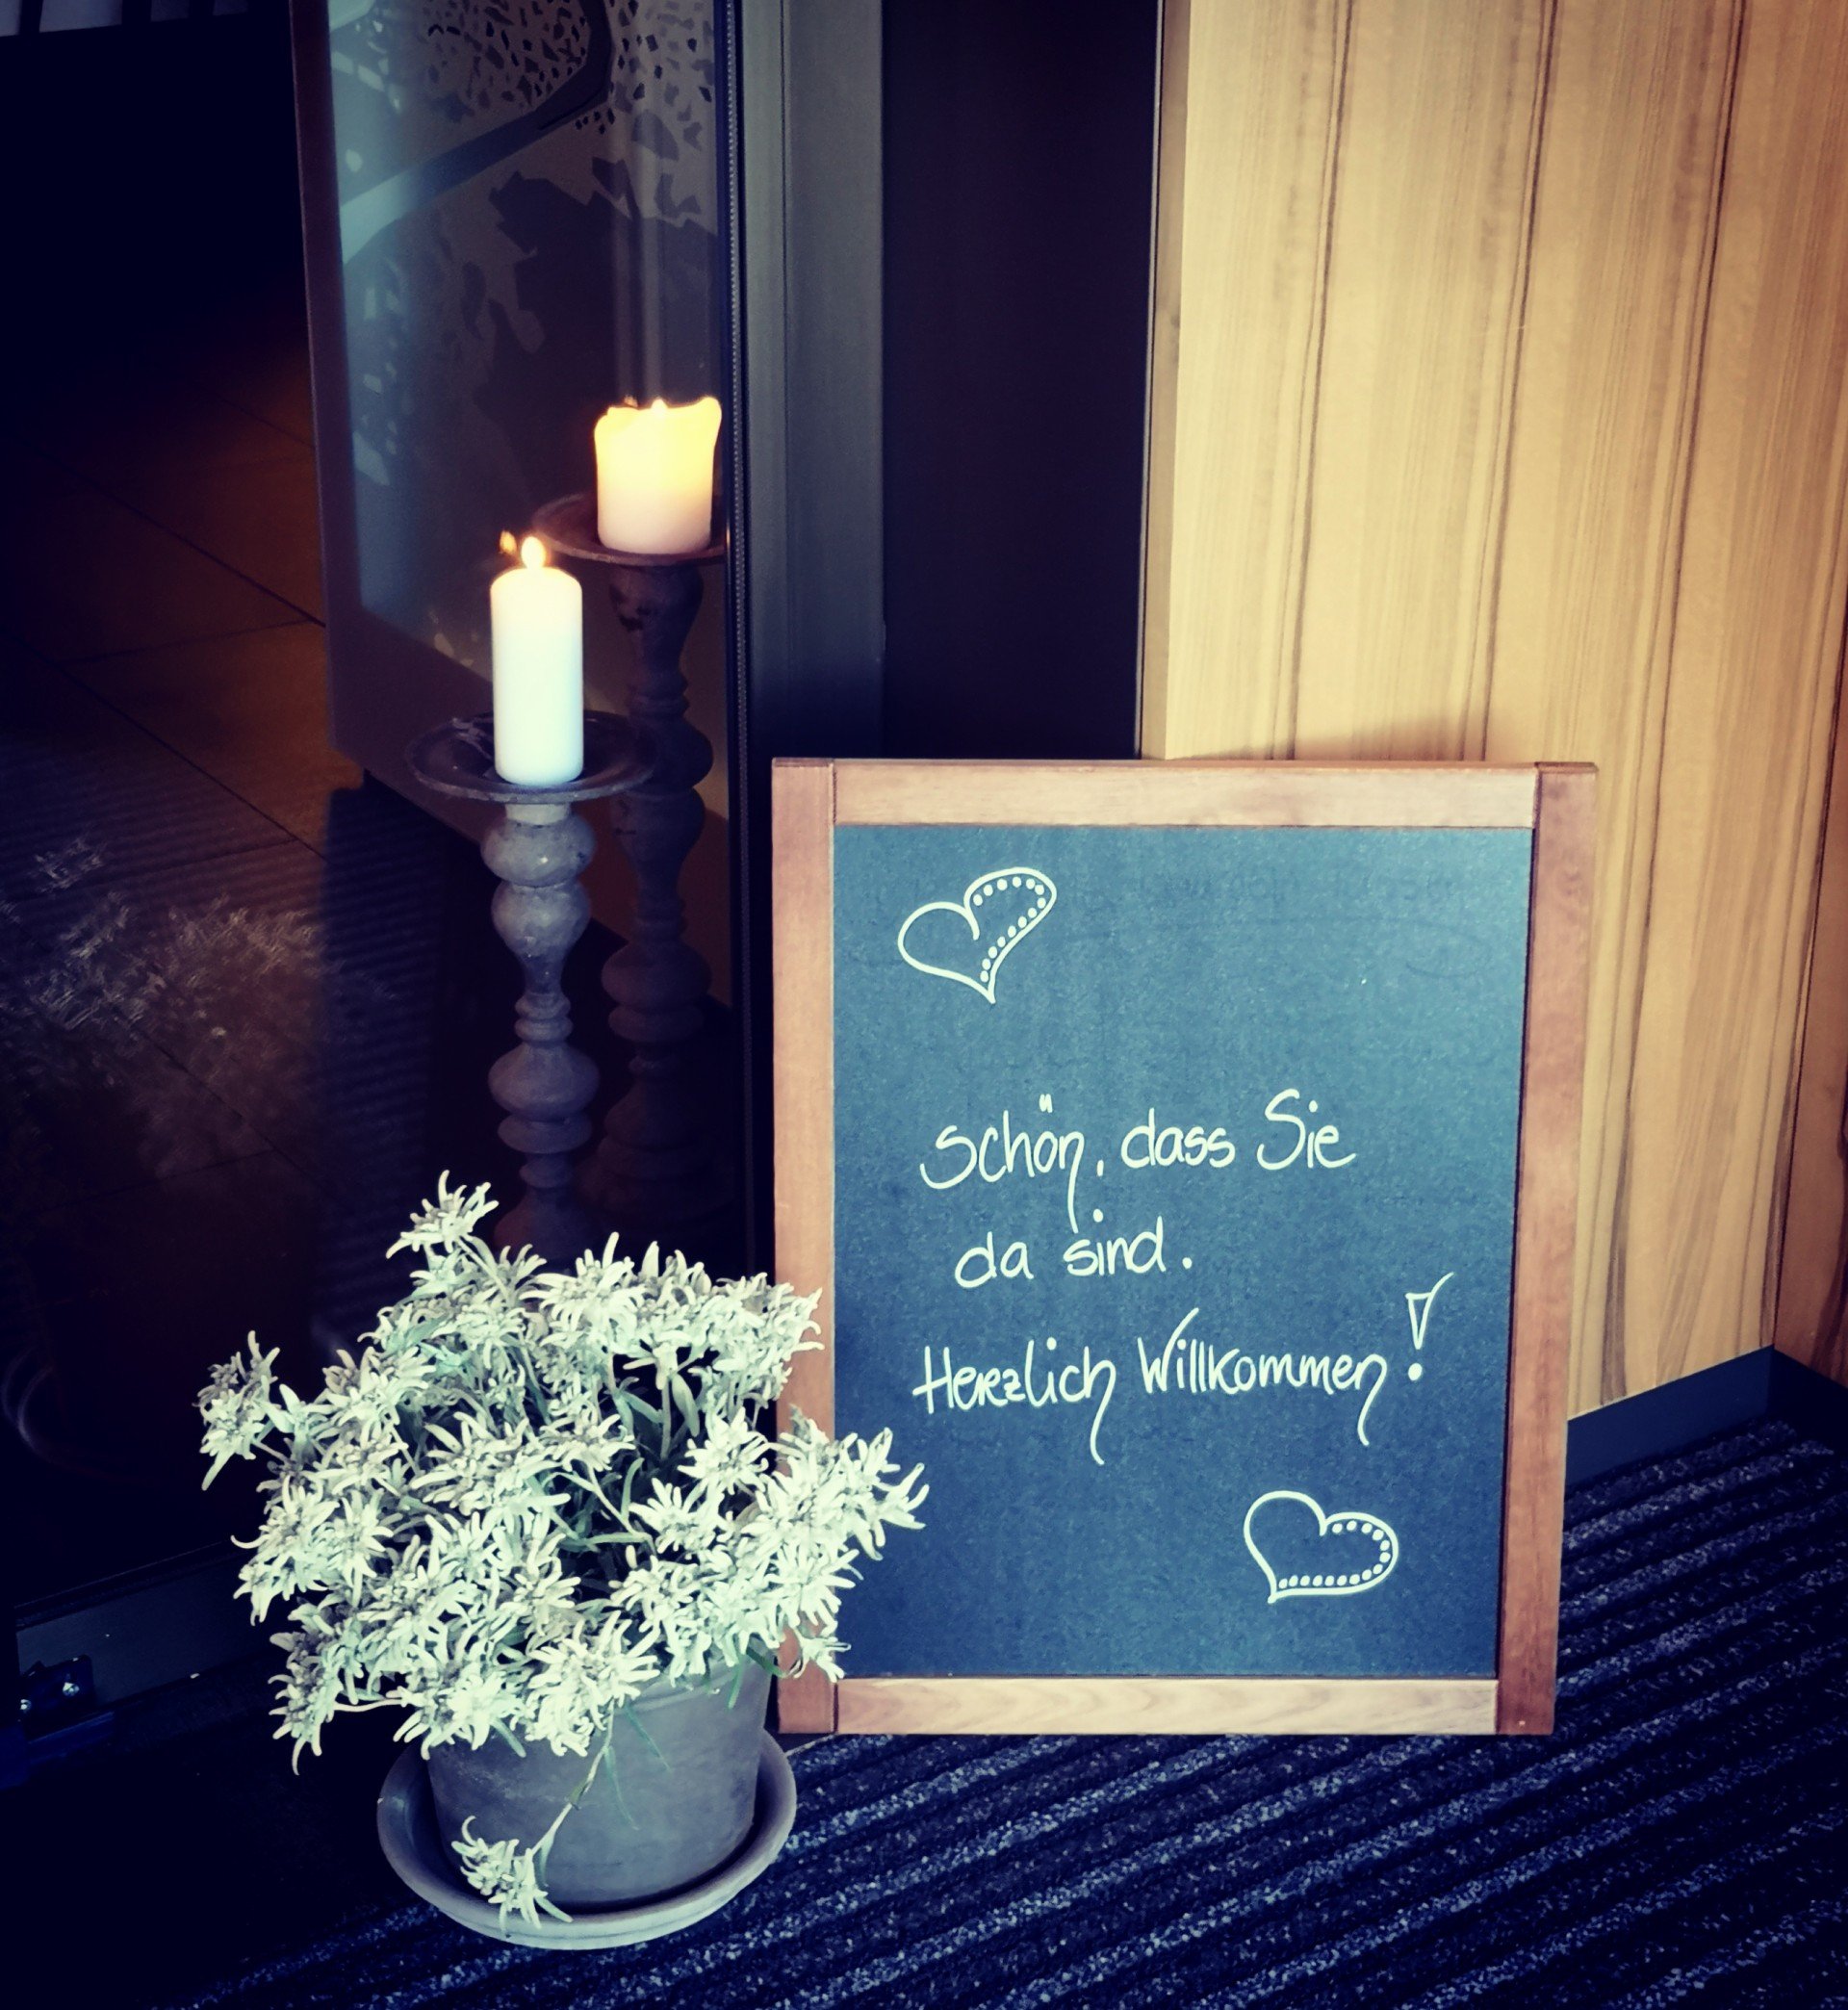 Schön, dass Sie
da sind.
Herzlich Willkommen!